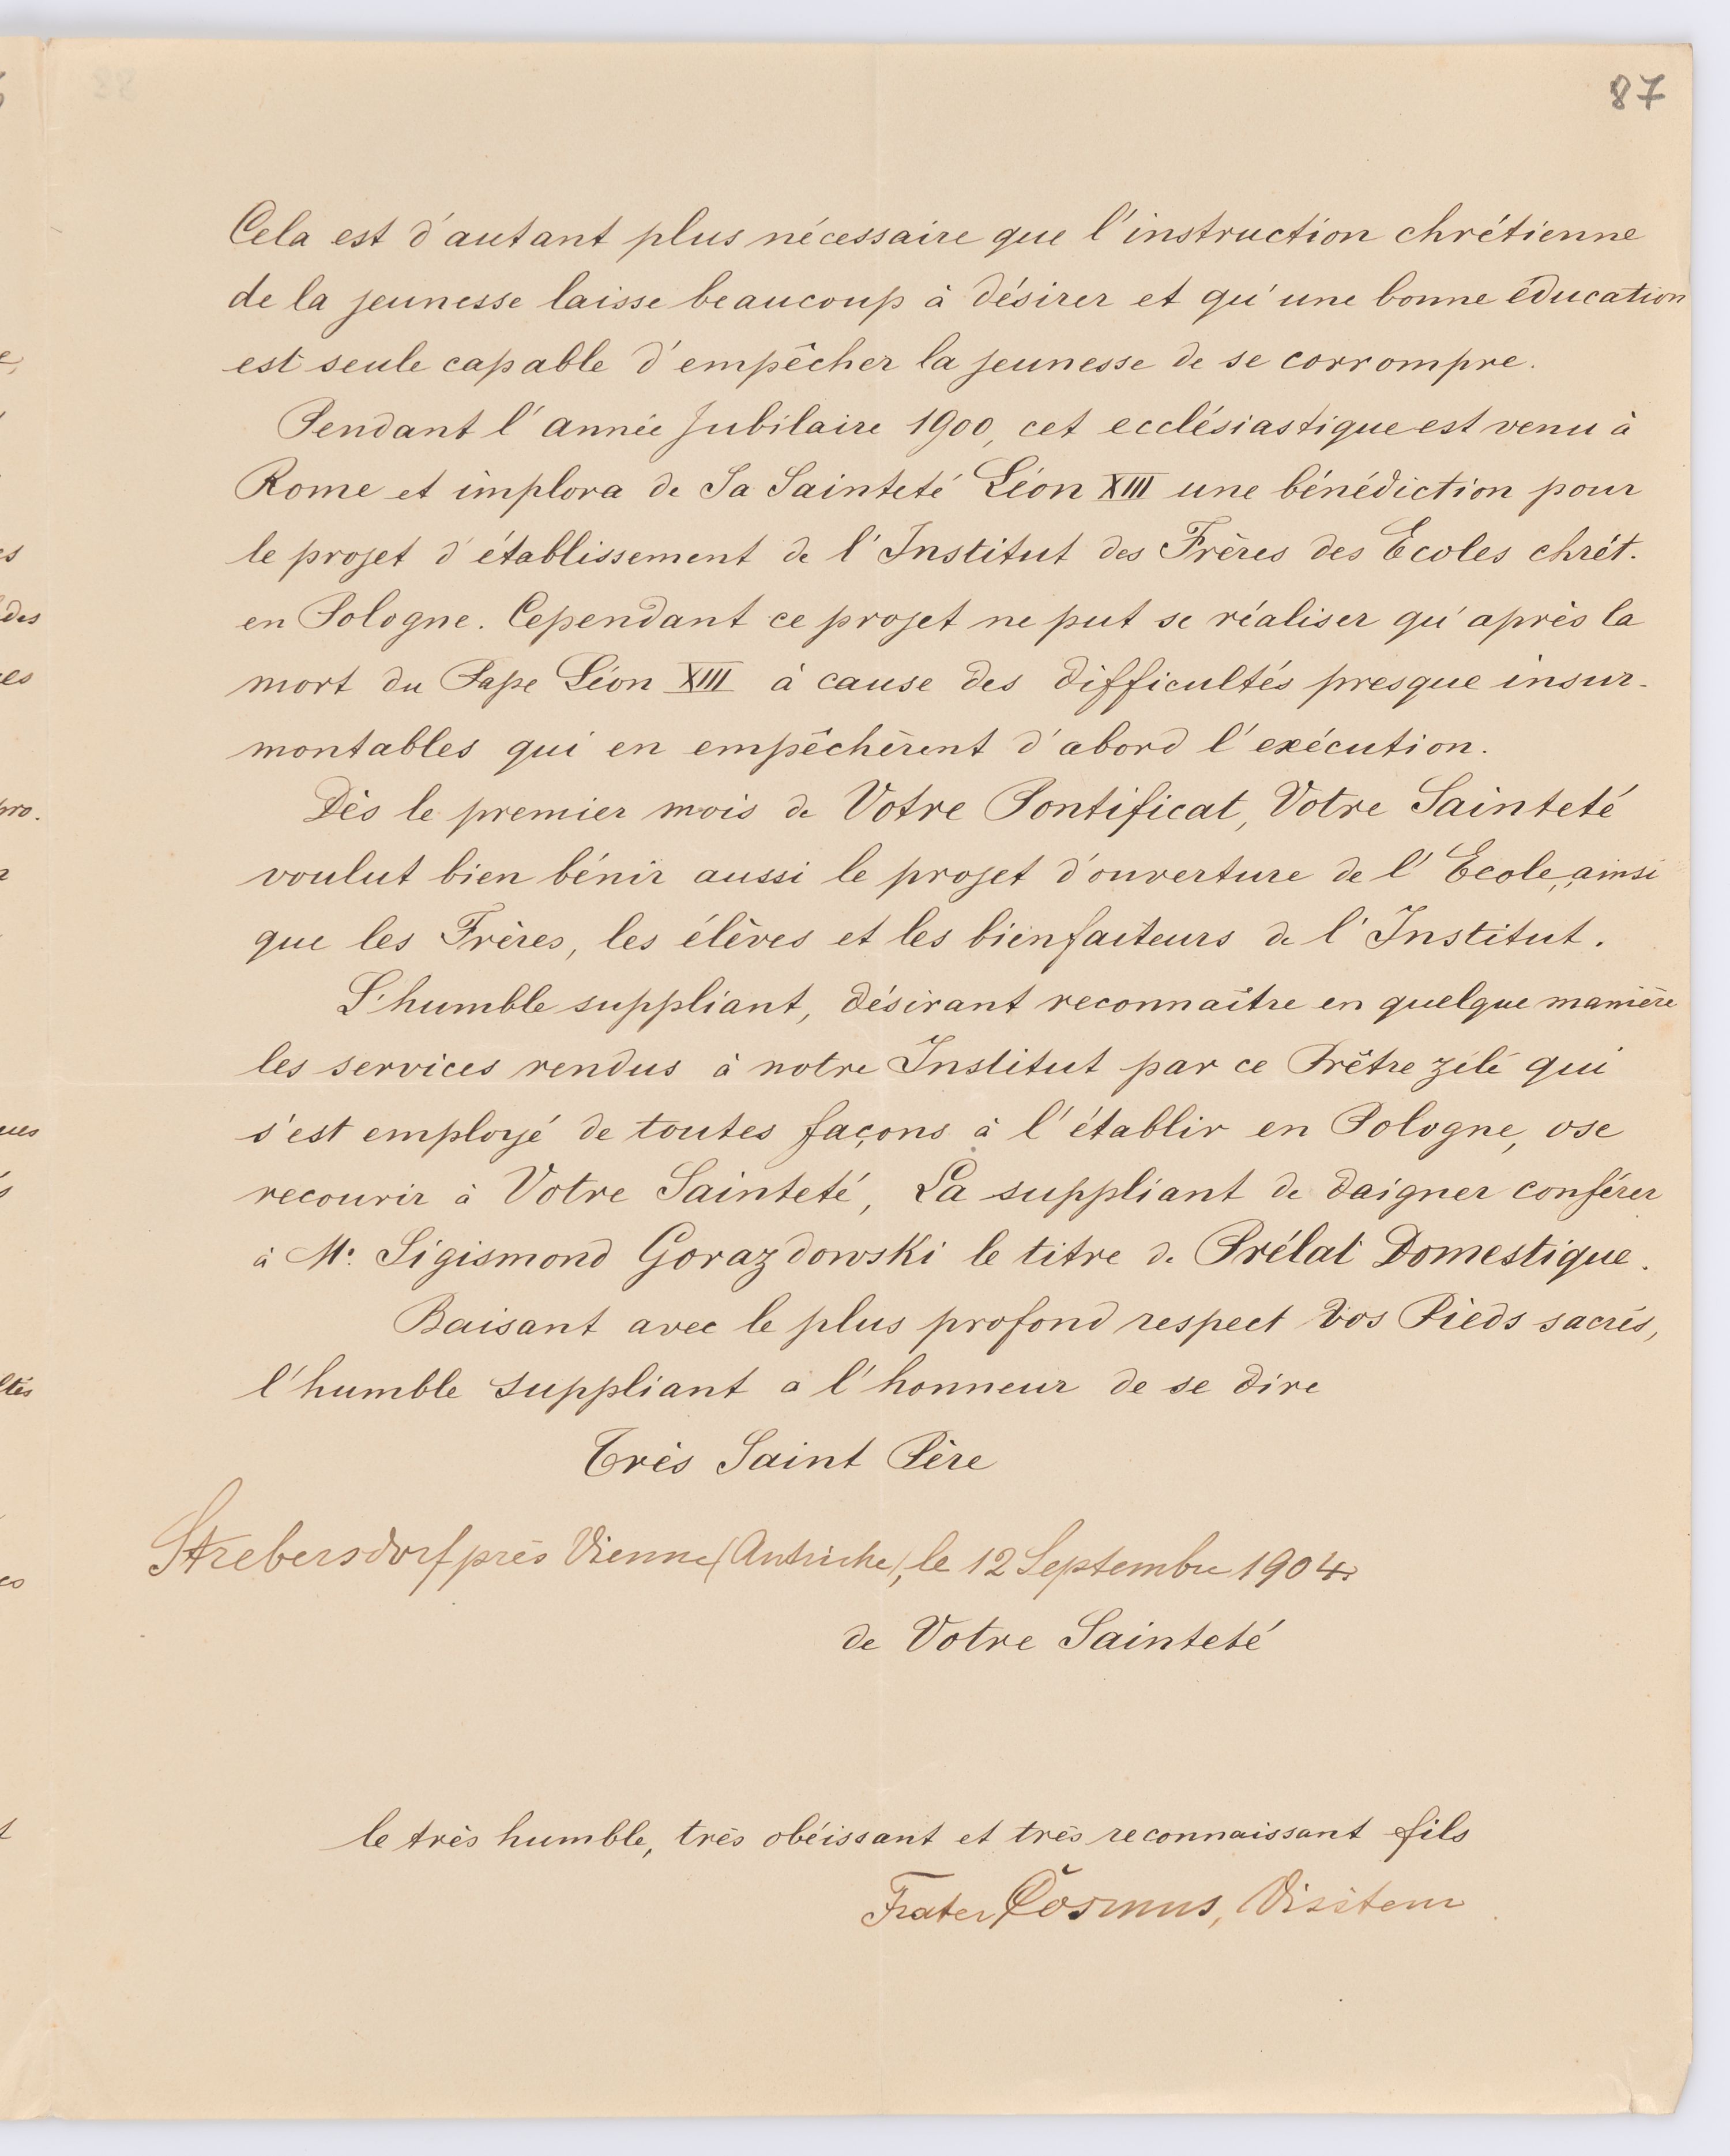 87
Cela est d'autant plus nécessaire que l'instruction chrétienne
de la jeunesse laisse beaucoup à désirer et qu'une bonne éducation
est seule capable d'empêcher la jeunesse de se corrompre.
Pendant l'année Jubilaire 1900, cet ecclésiastique est venu à
Rome et implora de Sa Sainteté Léon XIII une bénédiction pour
le projet d'établissement de l'Institut des Frères des Ecoles chrét.
en Pologne. Cependant ce projet ne put se réaliser qu'après la
mort du Pape Léon XIII à cause des difficultés presque insur-
montables qui en empêchèrent d'abord l'exécution.
Dès le premier mois de Votre Pontificat, Votre Sainteté
voulut bien bénir aussi le projet d'ouverture de l'Ecole, ainsi
que les Frères, les élèves et les bienfaiteurs de l'Institut.
L'humble suppliant, désirant reconnaître en quelque manière
les services rendus à notre Institut par ce Prêtre zélé qui
s'est employé de toutes façons à l'établir en Pologne, ose
recourir à Votre Sainteté, La suppliant de daigner conférer
à Mr. Sigismond Gorazdowski le titre de Prélat Domestique.
Baisant avec le plus profond respect Vos Pieds sacrés,
l'humble suppliant a l'honneur de se dire
Très Saint Père
Strebersdorf près Vienne (Autriche), le 12 Septembre 1904
de Votre Sainteté
le très humble, très obéissant et très reconnaissant fils
Frater Cosmus, Visiteur